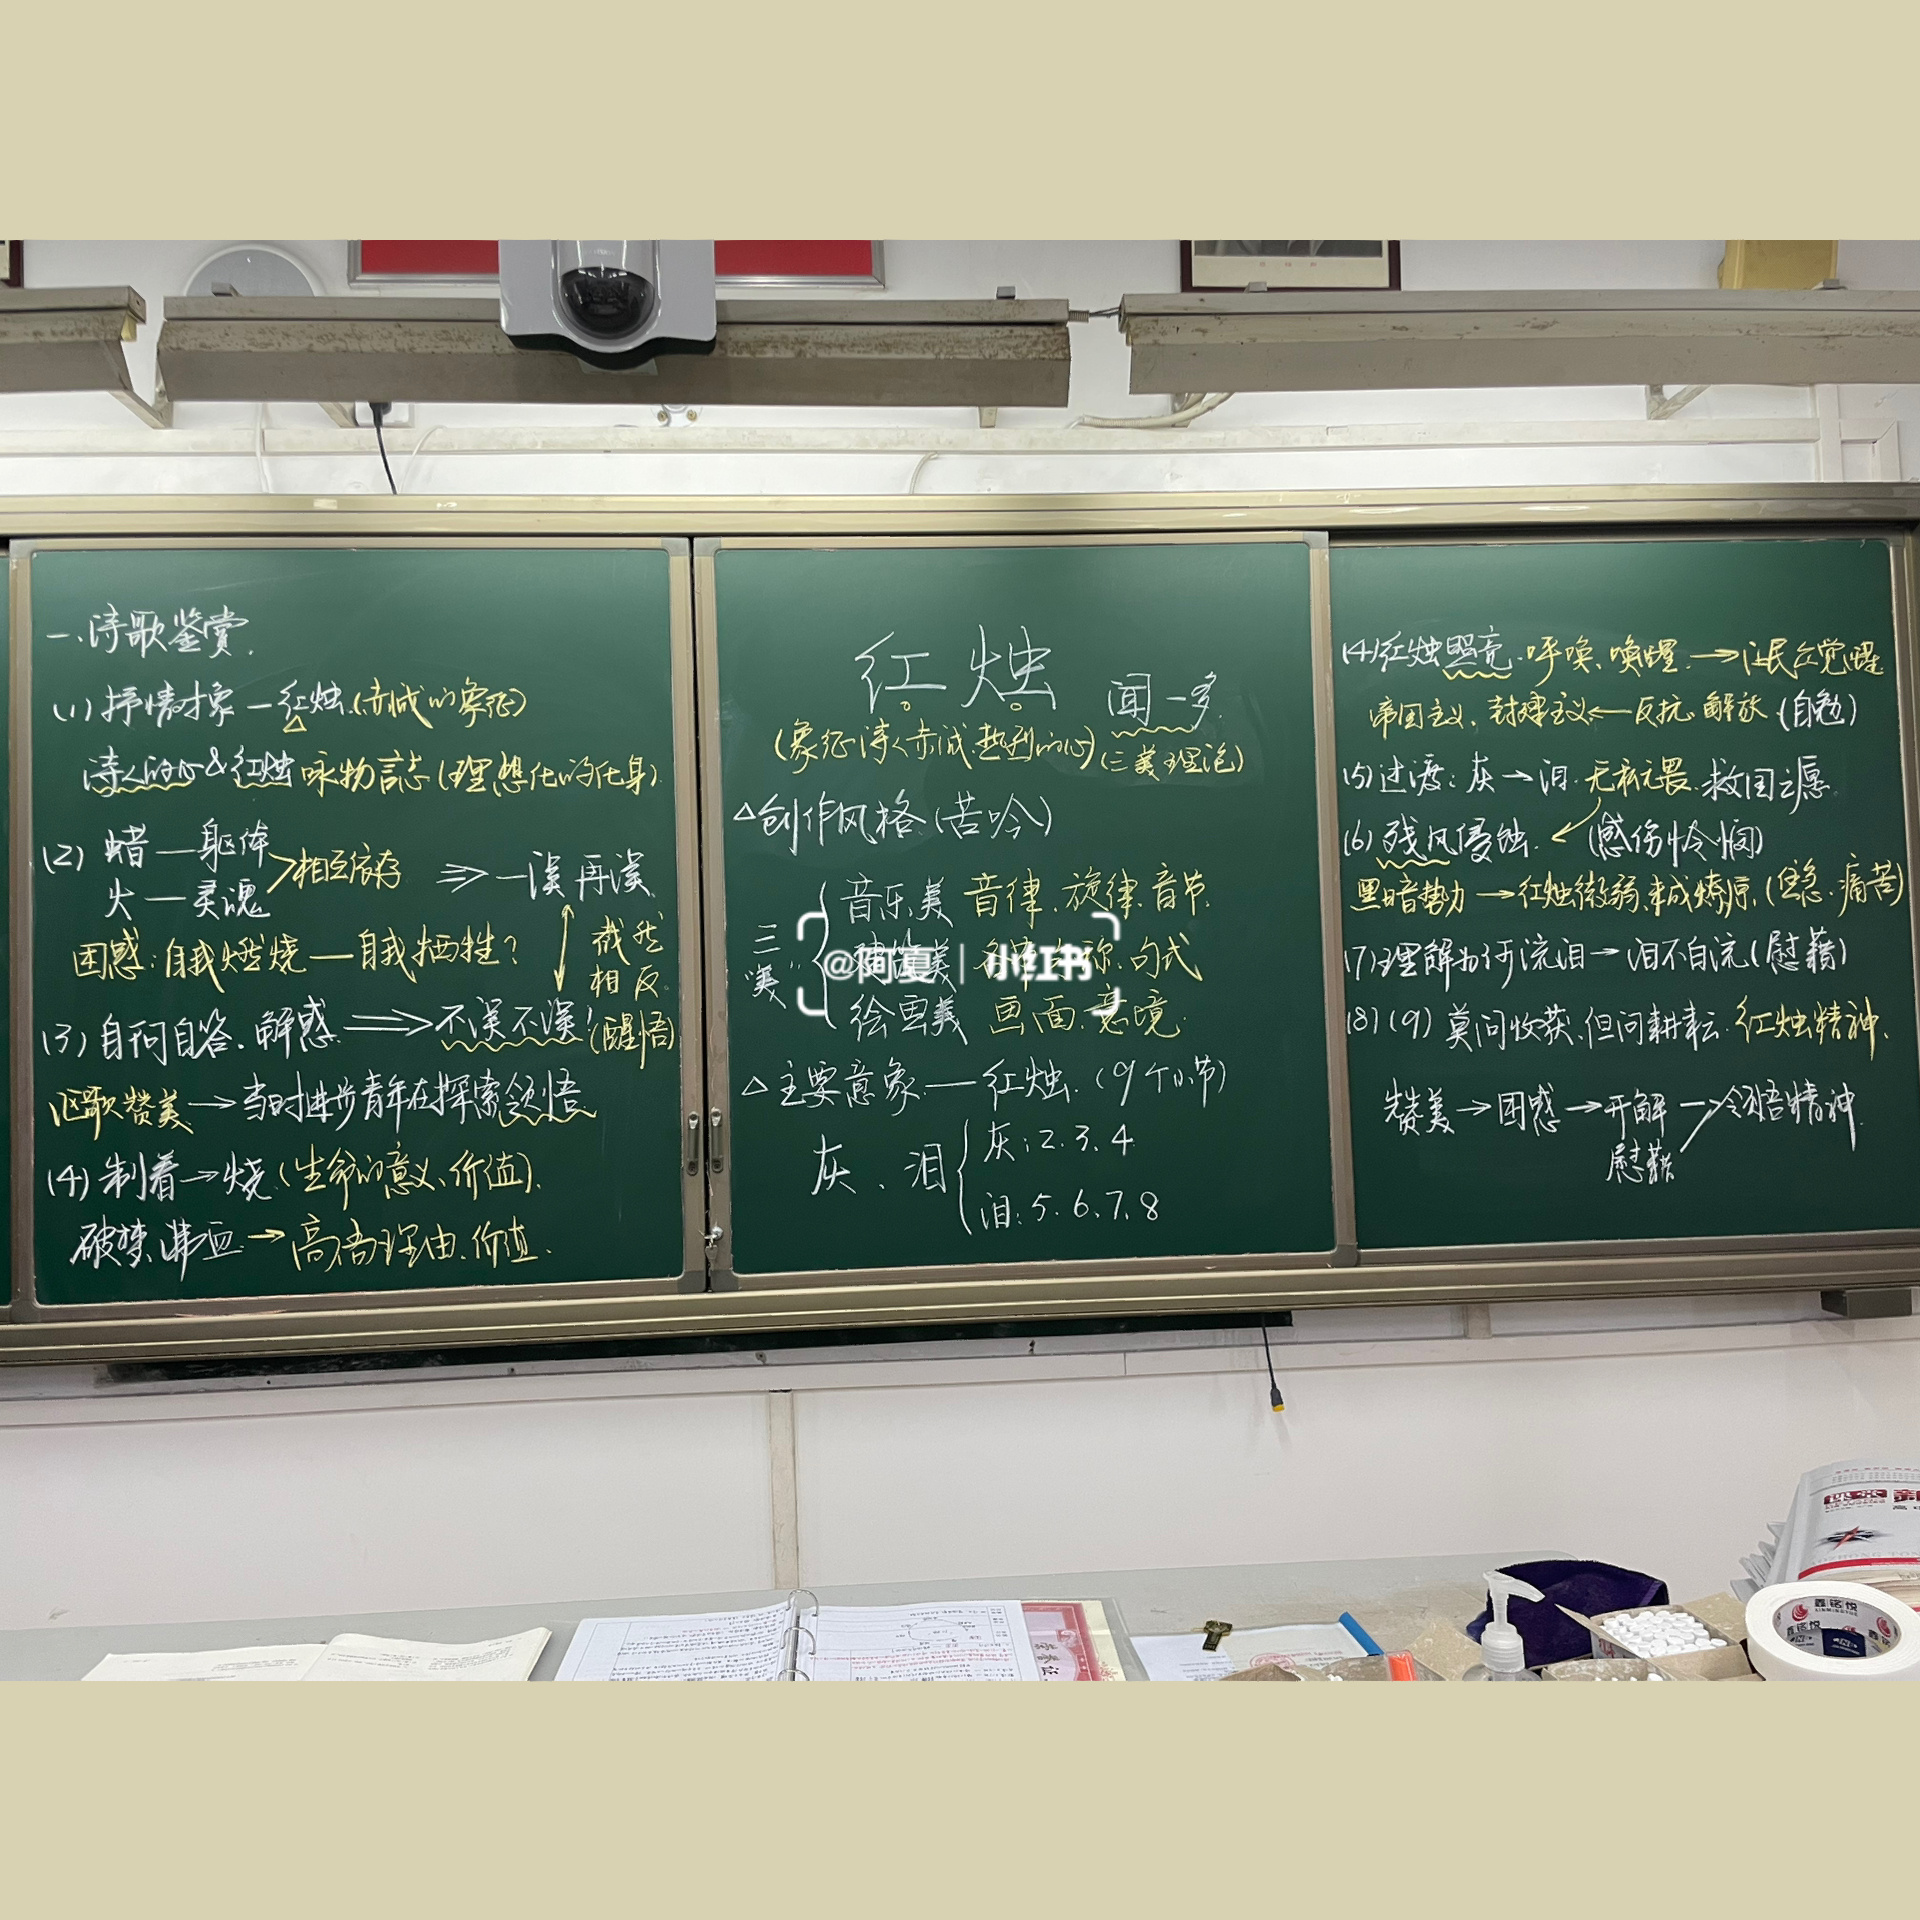 一.诗歌鉴赏.
(1) 抒情对象—红烛.(赤诚的象征)
诗人的心&红烛 咏物言志 (理想化的化身)
(2) 蜡—躯体
火—灵魂
相互依存
一误再误.
困惑:自我燃烧—自我牺牲?
截然
相反.
(3) 自问自答.解惑 不误不误! (醒悟)
讴歌赞美→当时进步青年在探索领悟.
(4) 制着→烧.(生命的意义、价值).
破梦、沸血→高尚理由.价值.
红烛
闻一多.
(象征诗人赤诚.热烈的心)
(三美理论)
△创作风格(苦吟)
三
"美"
音乐美 音律、旋律、音节.
建筑美 匀称.句式
绘画美 画面.意境.
@阿夏 | 小红书
△主要意象—红烛.(9个小节)
灰、泪
灰:2.3.4
泪:5.6.7.8
(4)红烛照亮.呼唤、唤醒.→让民众觉醒
帝国主义、封建主义←反抗.解放(自勉)
(5)过渡:灰→泪.无私无畏.救国之愿.
(6)残风侵蚀.←(感伤怜悯)
黑暗势力→红烛微弱.未成燎原.(焦急.痛苦)
(7)理解为何流泪→泪不白流(慰藉)
(8)(9)莫问收获、但问耕耘.红烛精神.
赞美→困惑→开解→领悟精神.
慰藉